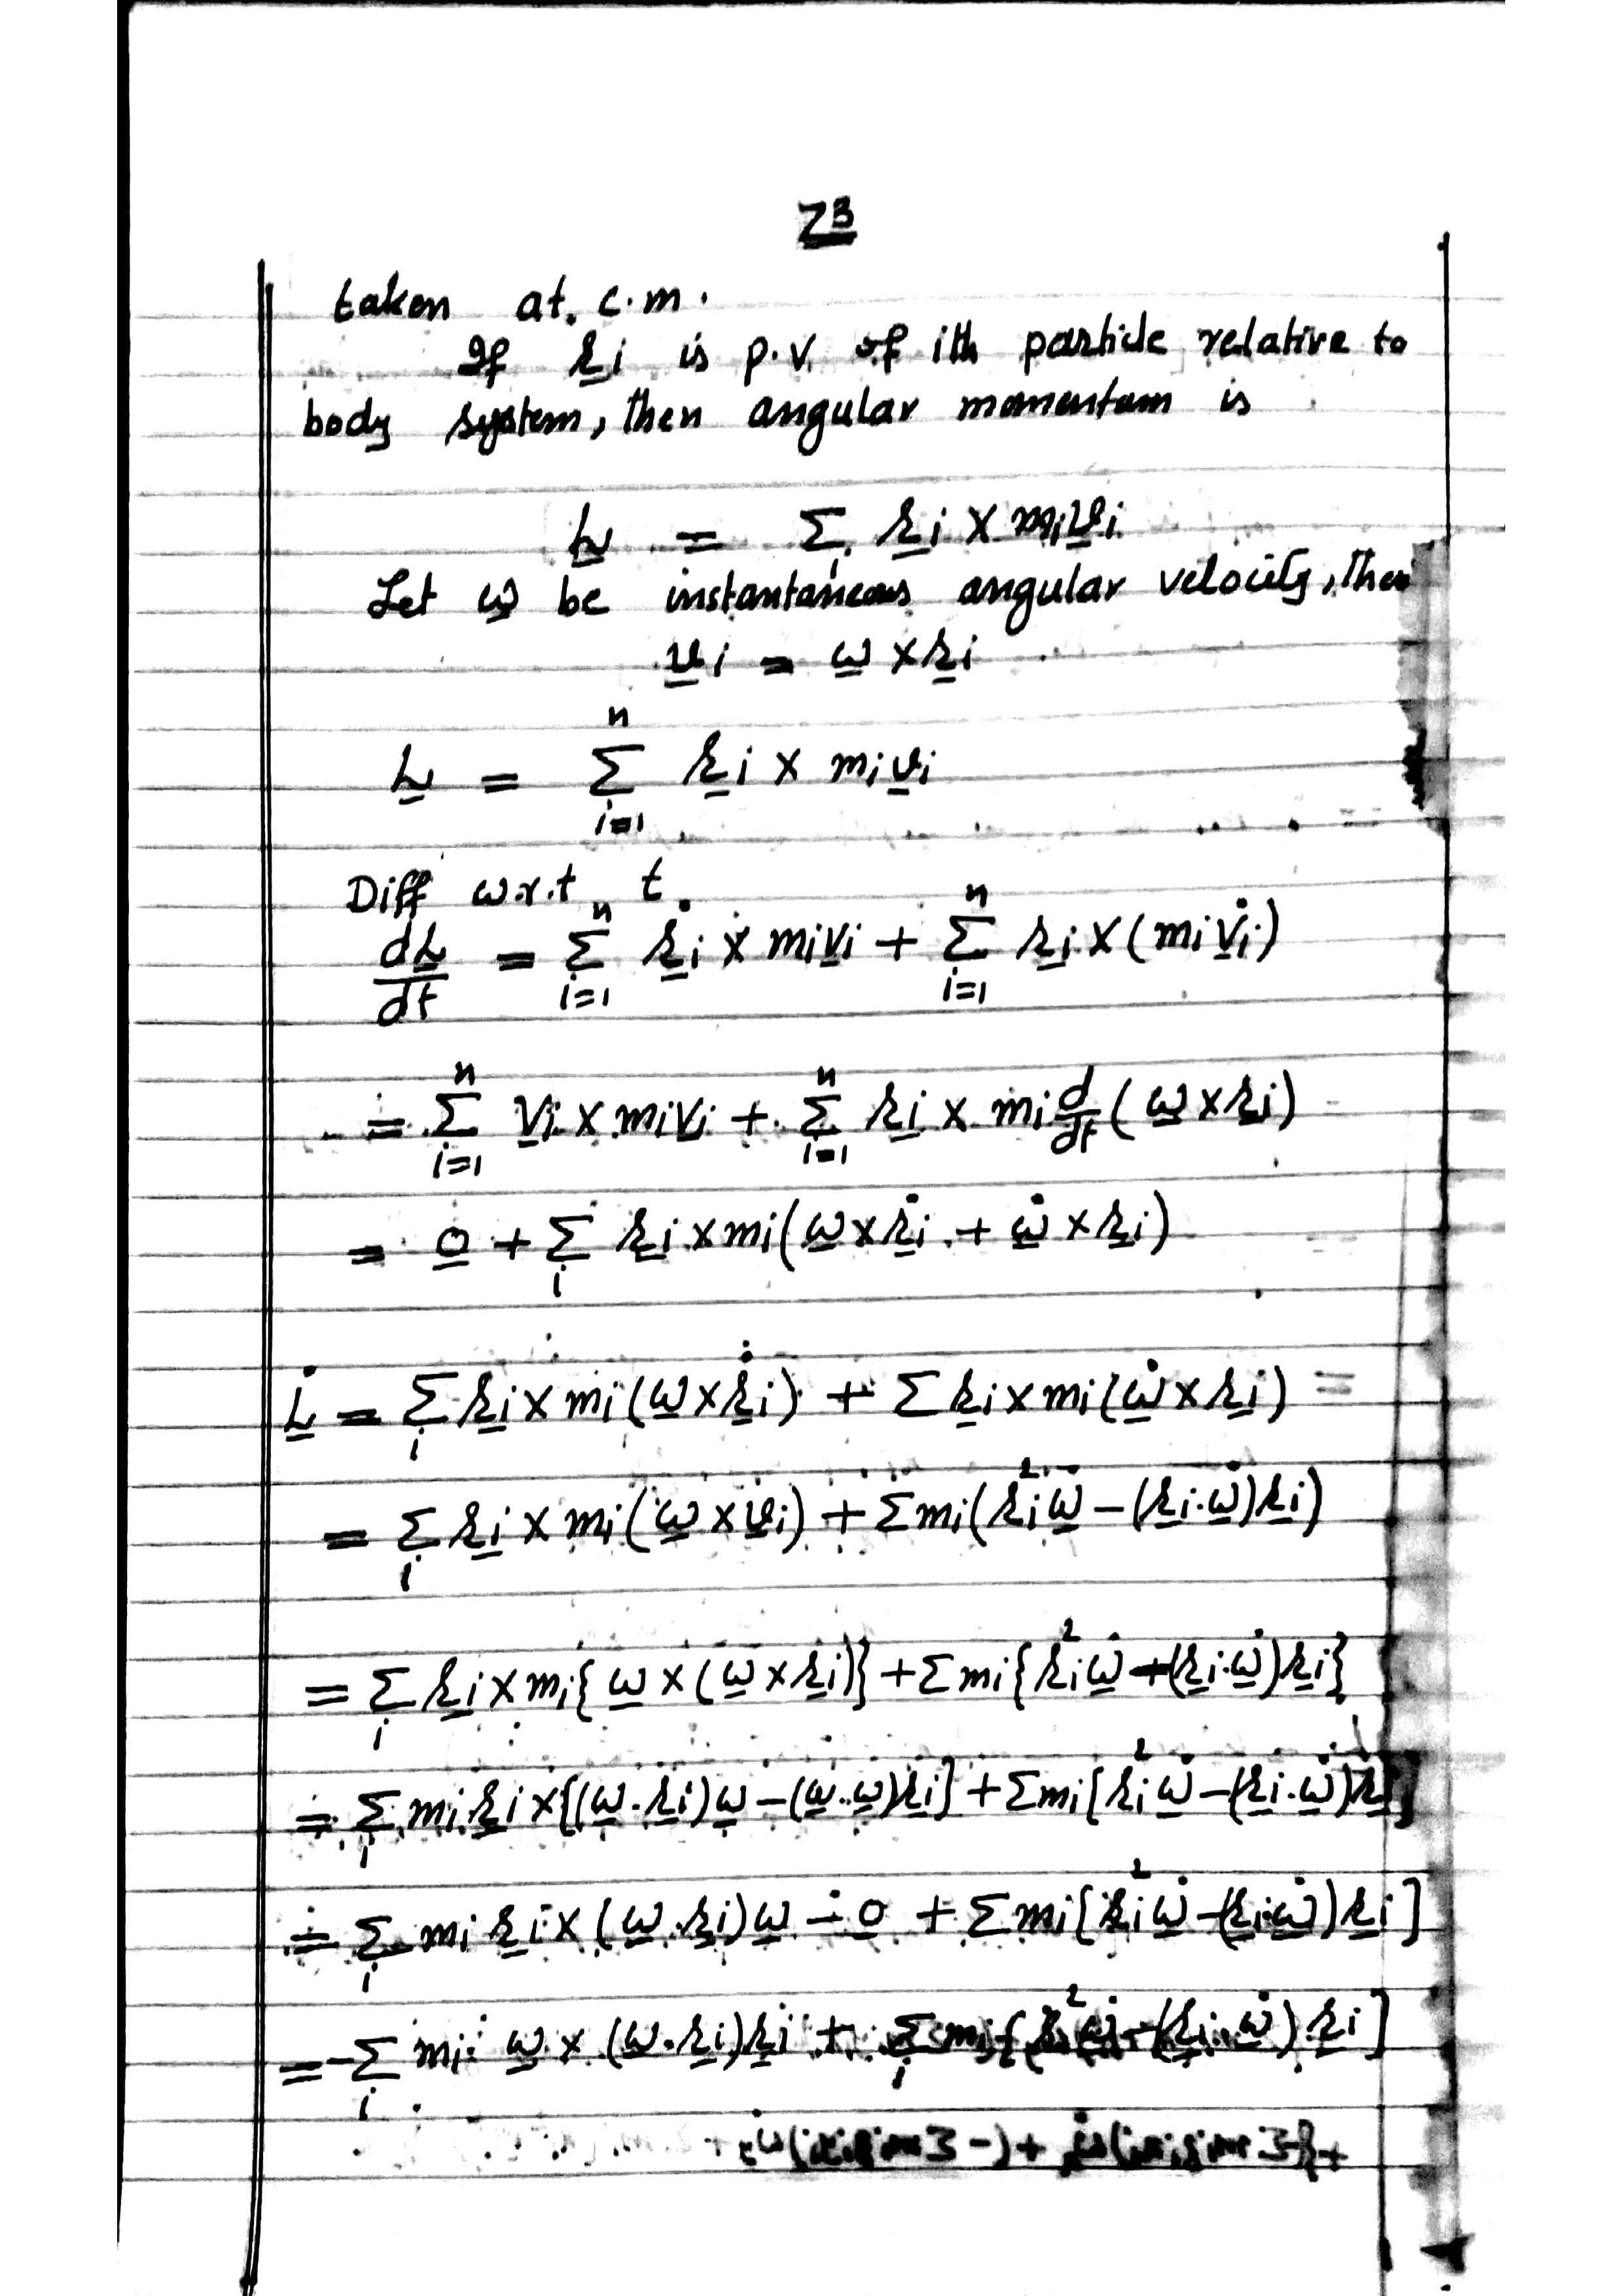 73
taken at. c.m.
If r̲i is p.v. of ith particle relative to
body system, then angular momentum is
L̲ = Σi r̲i × mi v̲i
Let ω̲ be instantaneous angular velocity, then
v̲i = ω̲ × r̲i
L̲ = Σ_{i=1}^{n} r̲i × mi v̲i
Diff w.r.t t.
dL̲/dt = Σ_{i=1}^{n} ṙ̲i × mi v̲i + Σ_{i=1}^{n} r̲i × (mi v̲̇i)
= Σ_{i=1}^{n} v̲i × mi v̲i + Σ_{i=1}^{n} r̲i × mi d/dt (ω̲ × r̲i)
= 0̲ + Σi r̲i × mi (ω̲ × ṙ̲i + ω̲̇ × r̲i)
L̲̇ = Σi r̲i × mi (ω̲ × ṙ̲i) + Σ r̲i × mi (ω̲̇ × r̲i) =
= Σi r̲i × mi (ω̲ × v̲i) + Σ mi (ri² ω̲̇ – (r̲i.ω̲̇) r̲i)
= Σi r̲i × mi { ω̲ × (ω̲ × r̲i)} + Σ mi { ri² ω̲̇ – (r̲i.ω̲̇) r̲i}
= Σi mi r̲i × {(ω̲.r̲i) ω̲ – (ω̲.ω̲) r̲i] + Σ mi [ri² ω̲̇ – (r̲i.ω̲̇) r̲i]
= Σi mi r̲i × (ω̲.r̲i) ω̲ – 0 + Σ mi [ri² ω̲̇ – (r̲i.ω̲̇) r̲i]
= –Σi mi ω̲ × (ω̲.r̲i) r̲i + Σi mi [ri² ω̲̇ – (r̲i.ω̲̇) r̲i]